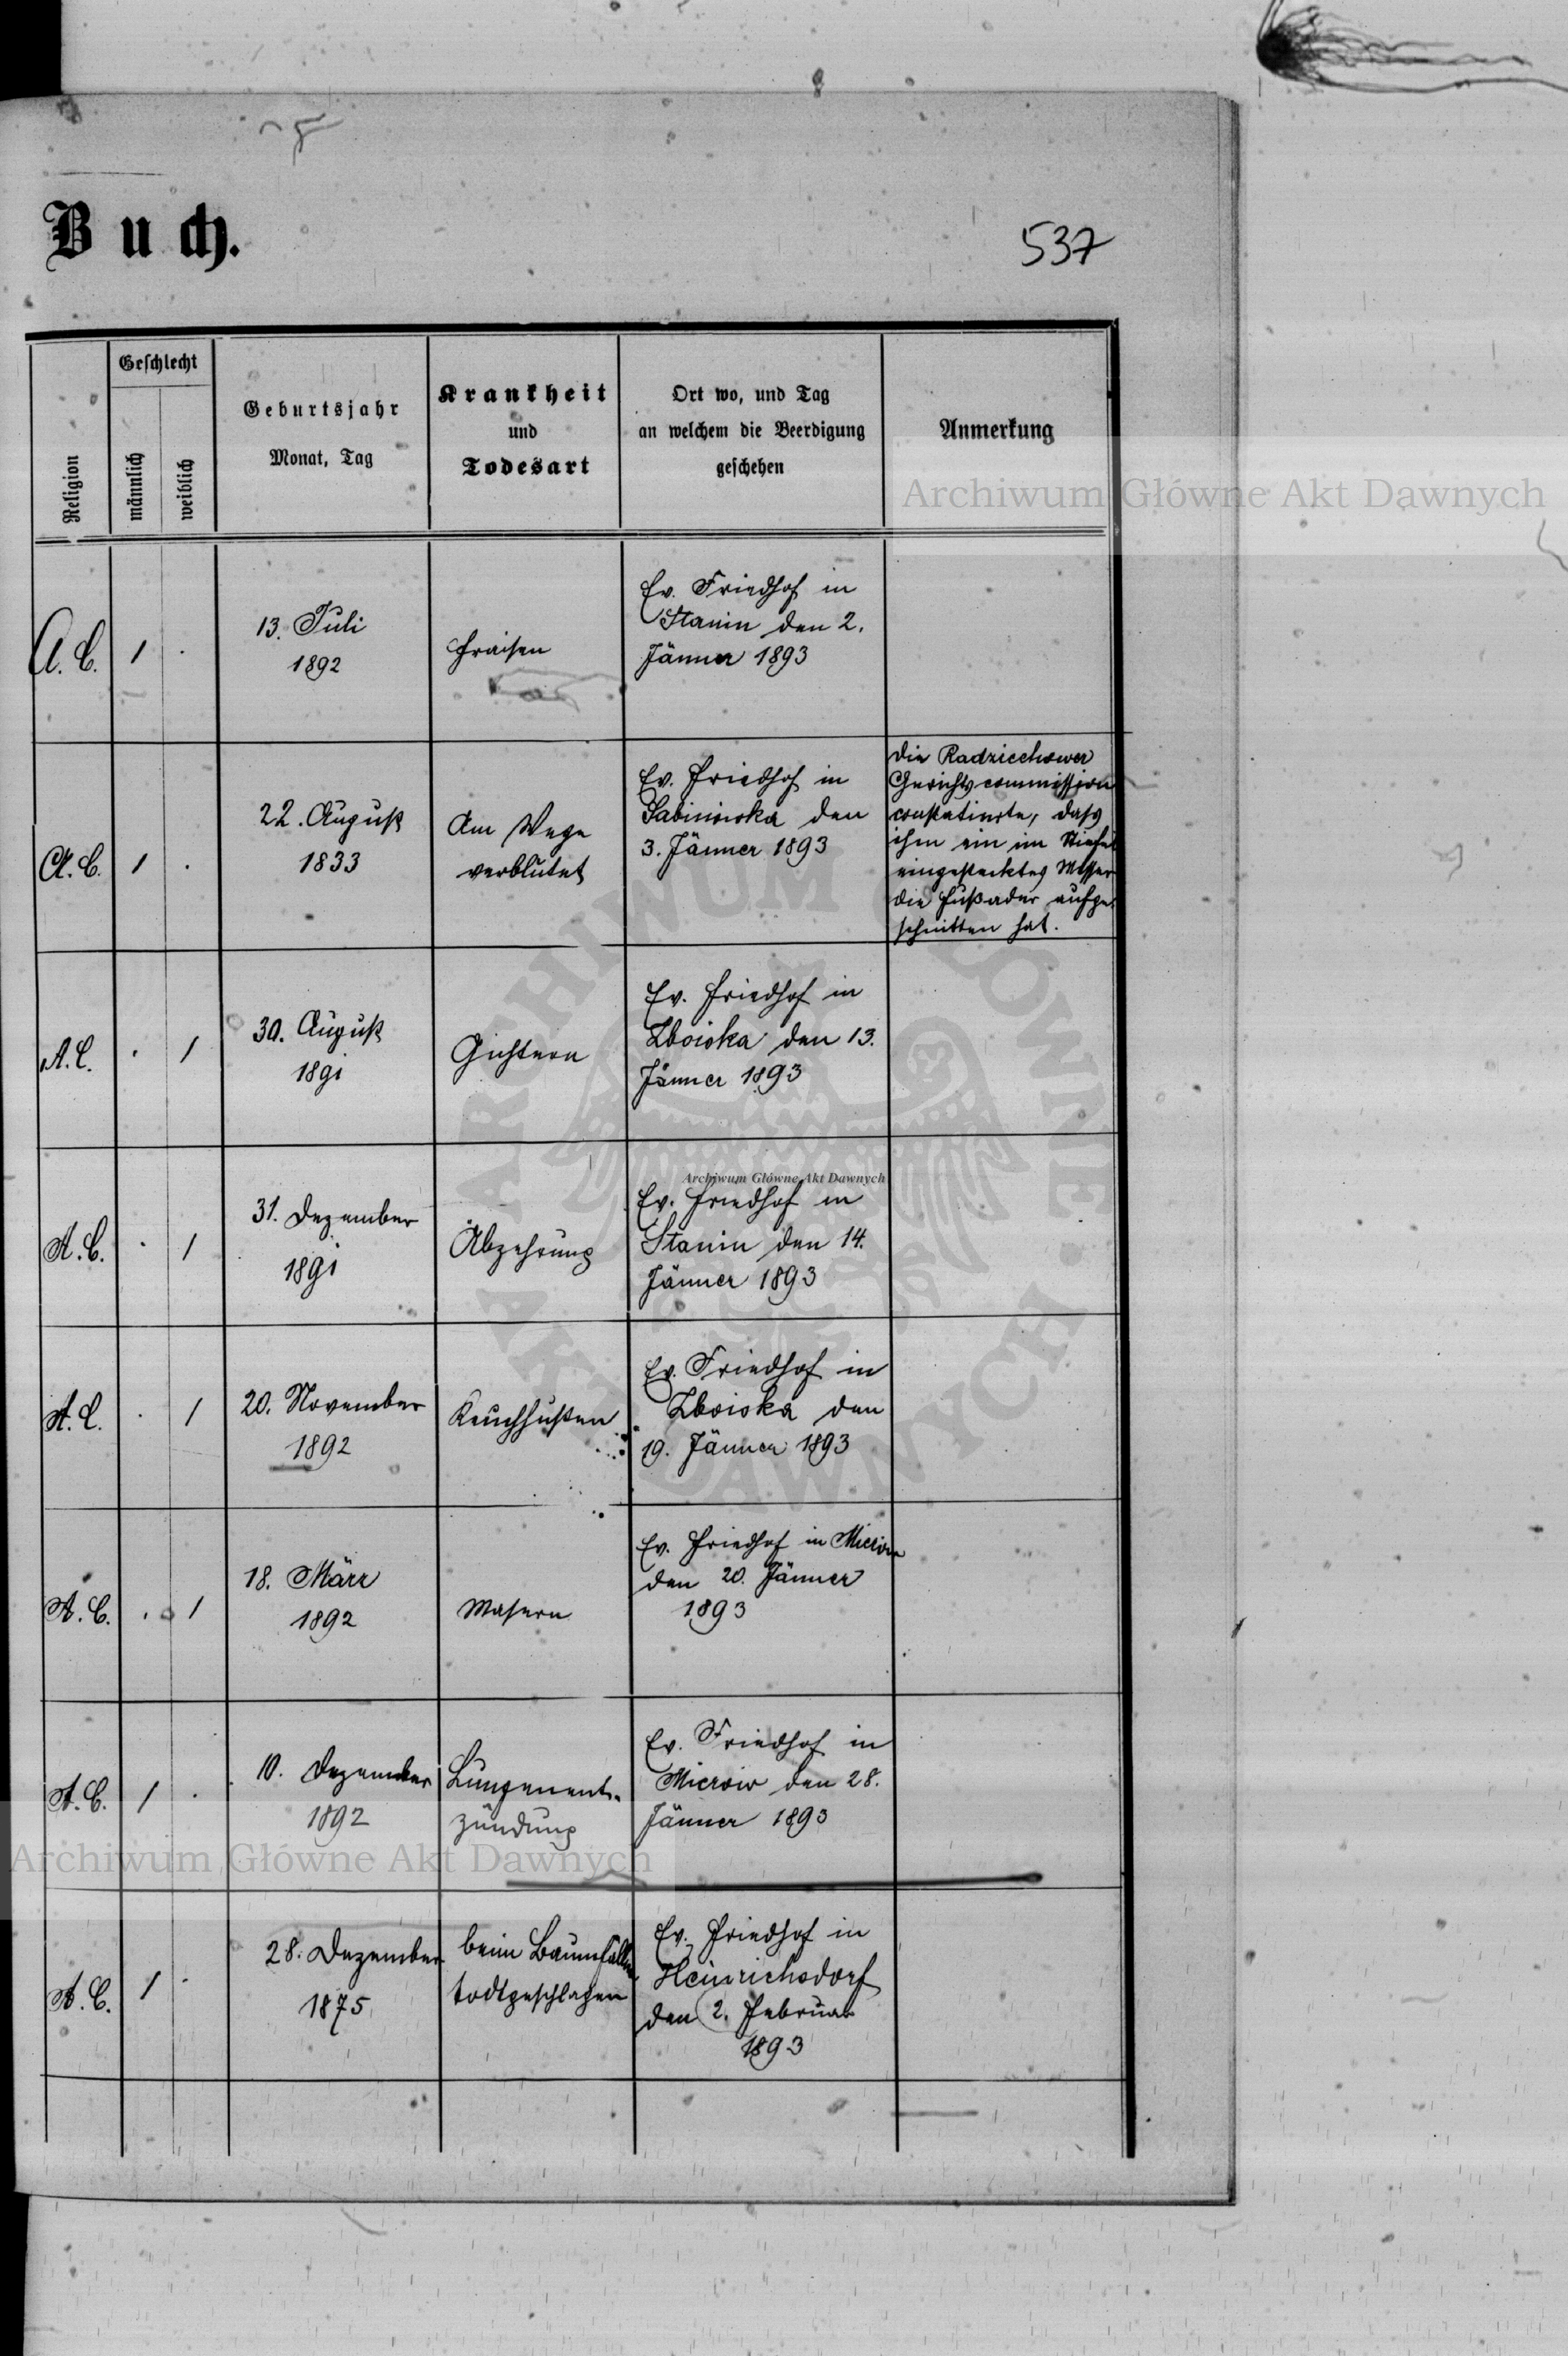 Buch.
537
Religion
Geschlecht
männlich
weiblich
Geburtsjahr
Monat, Tag
Krankheit
und
Todesart
Ort wo, und Tag
an welchem die Beerdigung
geschehen
Anmerkung
Archiwum Główne Akt Dawnych
A. C. 1 .
13. Juli
1892
Fraisen
Ev. Friedhof in
Stanin den 2.
Jänner 1893
A. C. 1 .
22. August
1833
Am Wege
verblutet
Ev. Friedhof in
Sabinowka den
3. Jänner 1893
Die Radziechower
Gerichtscommission
constatirte, dass
ihm ein im Stiefel
eingestecktes Messer
die Fußader aufge-
schnitten hat.
A. C. . 1
30. August
1891
Gichtern
Ev. Friedhof in
Zboiska den 13.
Jänner 1893
A. C. . 1
31. Dezember
1891
Abzehrung
Archiwum Główne Akt Dawnych
Ev. Friedhof in
Stanin den 14.
Jänner 1893
A. C. . 1
20. November
1892
Keuchhusten
Ev. Friedhof in
Zboiska den
19. Jänner 1893
A. C. . 1
18. März
1892
Masern
Ev. Friedhof in Mierow
den 20. Jänner
1893
A. C. 1 .
10. Dezember
1892
Lungenent-
zündung
Ev. Friedhof in
Mierow den 28.
Jänner 1893
Archiwum Główne Akt Dawnych
A. C. 1 .
28. Dezember
1875
beim Baumfällen
todtgeschlagen
Ev. Friedhof in
Heinrichsdorf
den 2. Februar
1893
ARCHIWUM GŁÓWNE AKT DAWNYCH